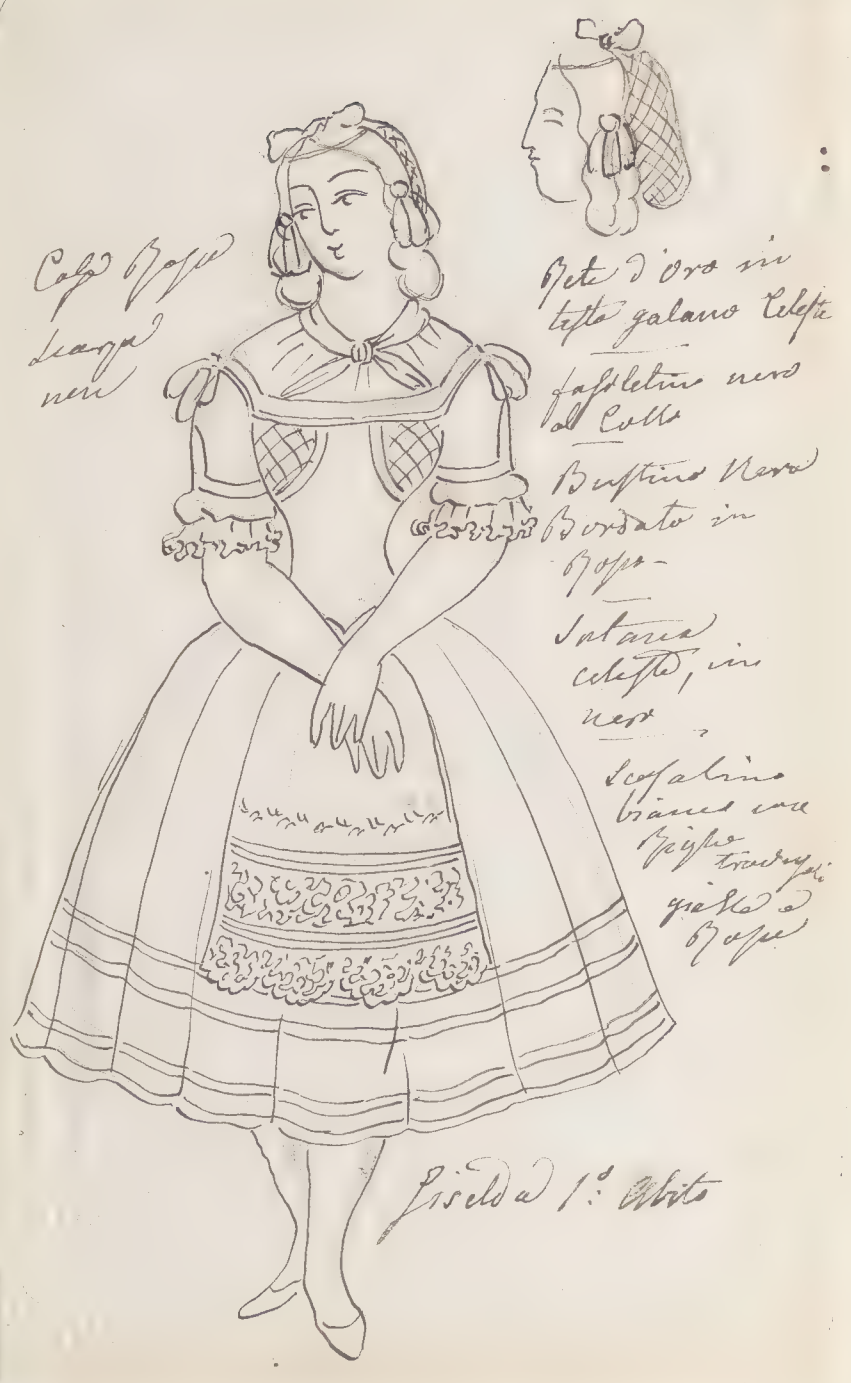 Calze Rosse
Scarpe
nere
Rete d'oro in
testa galano Celeste
fasoletino nero
al Collo
Bustino Nero
Bordato in
Rosso
Sotana
celeste, in
nero
bianco con
Righe
gialle e
Rosse
Giselda 1º: Abito